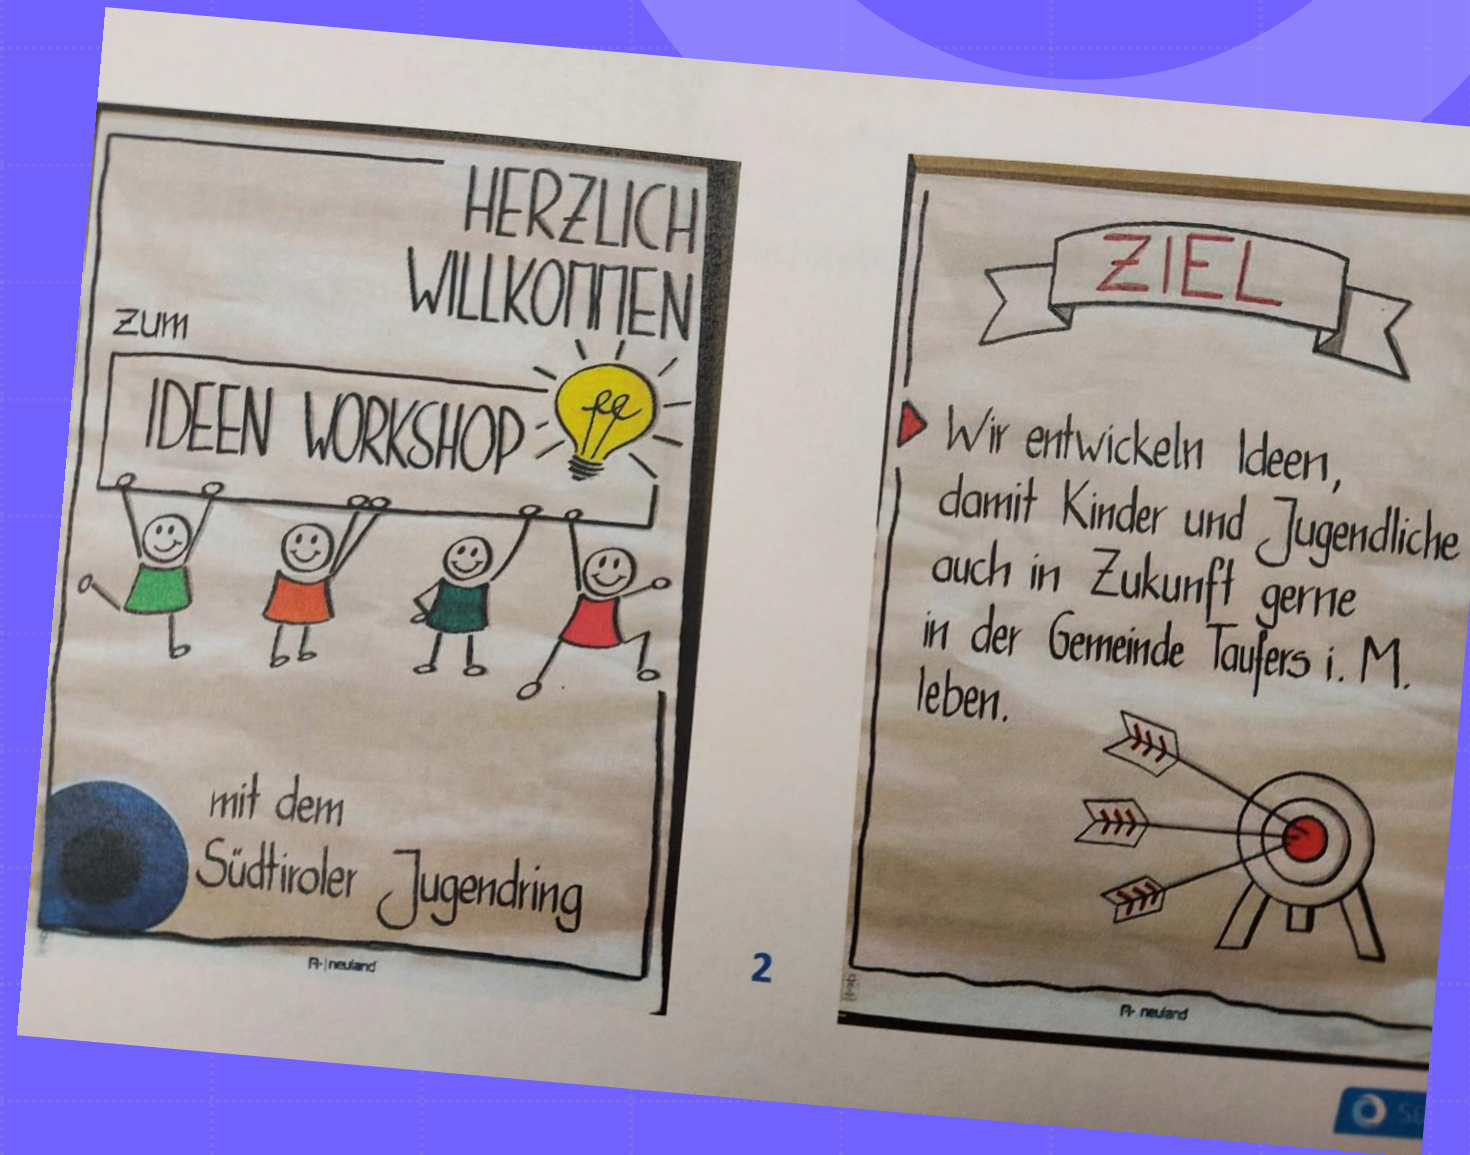 HERZLICH
WILLKOMMEN
zum
IDEEN WORKSHOP
mit dem
Südtiroler Jugendring
neuland
2
ZIEL
Wir entwickeln Ideen,
damit Kinder und Jugendliche
auch in Zukunft gerne
in der Gemeinde Taufers i. M.
leben.
neuland